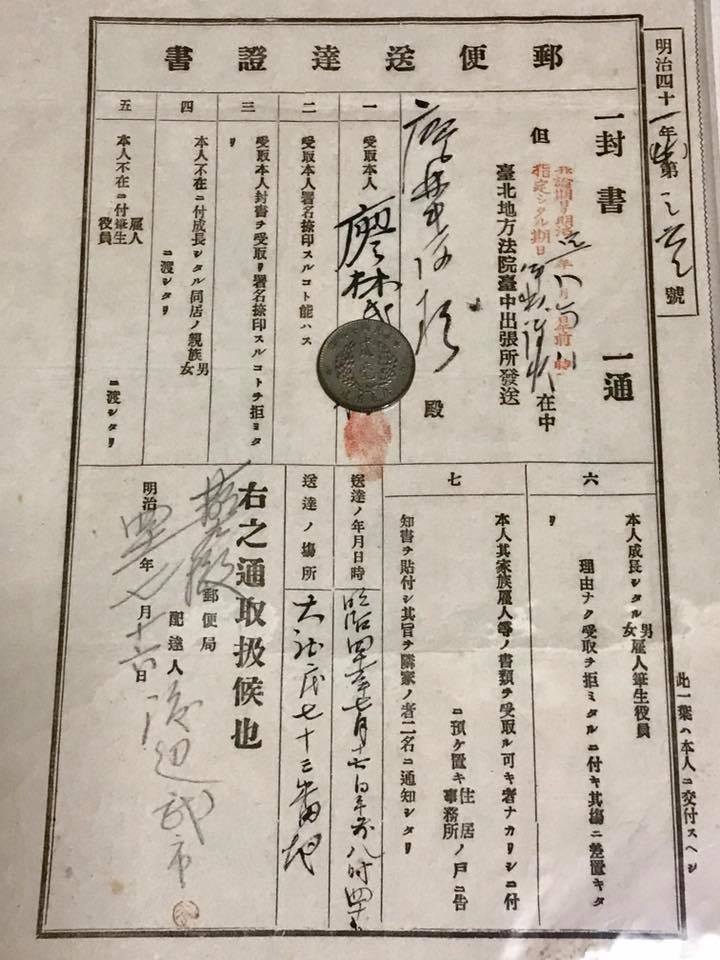 郵便送達證書
明治四十一年第 號
一封書 一通
但 在中
指定シタル期日
臺北地方法院臺中出張所發送
殿
一 受取本人
廖林氏
二 受取本人署名捺印スルコト能ハス
三 受取本人封書ヲ受取リ署名捺印スルコトヲ拒ミタリ
四 本人不在ニ付成長シタル同居ノ親族男女ニ渡シタリ
五 本人不在ニ付雇人筆生役員ニ渡シタリ
六 本人成長シタル男女雇人筆生役員
理由ナク受取ヲ拒ミタルニ付キ其場ニ差置キタリ
七 本人其家族雇人等ノ書類ヲ受取ル可キ者ナカリシニ付
ニ預ケ置キ住居事務所ノ戸ニ告
知書ヲ貼付シ其旨ヲ隣家ノ者二名ニ通知シタリ
送達ノ年月日時
明治四十一年七月十七日午前八時四十
送達ノ場所
七十三番地
右之通取扱候也
明治四一年七月十七日
郵便局
配達人 渡辺武市
此一葉ハ本人ニ交付スヘシ